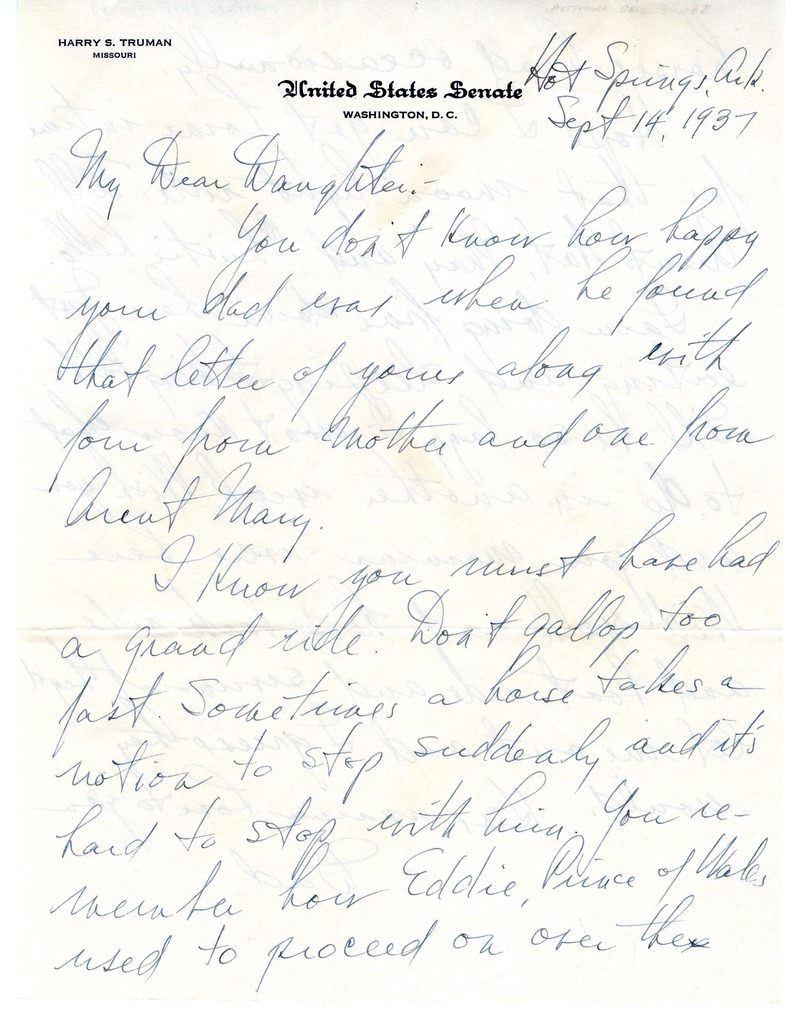 HARRY S. TRUMAN
MISSOURI
United States Senate
WASHINGTON, D. C.
Hot Springs, Ark.
Sept 14, 1937
My Dear Daughter:-
You don't know how happy
your dad was when he found
that letter of yours along with
four from Mother and one from
Aunt Mary.
I know you must have had
a grand ride. Don't gallop too
fast. Sometimes a horse takes a
notion to stop suddenly and it's
hard to stop with him. You re-
member how Eddie, Prince of Wales
used to proceed on over the